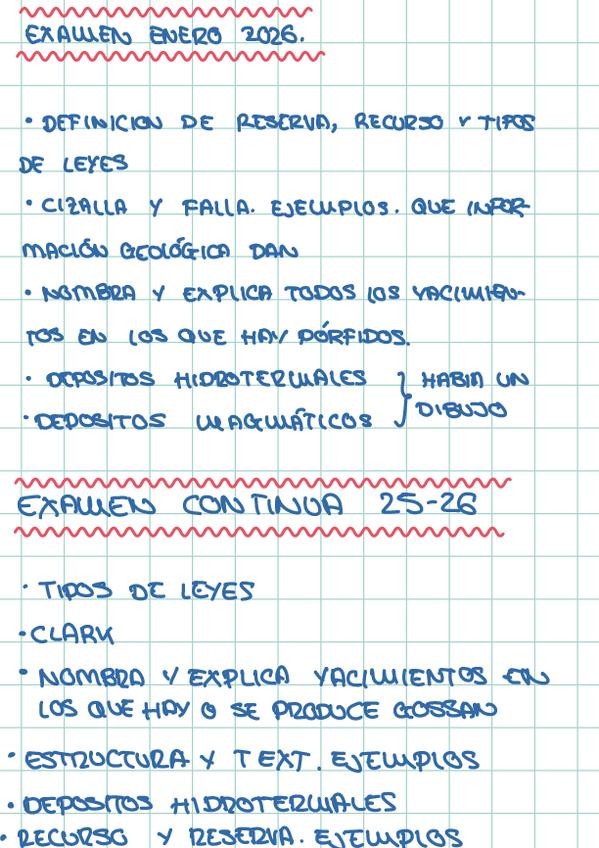 EXAMEN ENERO 2026.
• DEFINICION DE RESERVA, RECURSO Y TIPOS
DE LEYES
• CIZALLA Y FALLA. EJEMPLOS. QUE INFOR-
MACIÓN GEOLÓGICA DAN
• NOMBRA Y EXPLICA TODOS LOS YACIMIEN-
TOS EN LOS QUE HAY PÓRFIDOS.
• DEPOSITOS HIDROTERMALES } HABIA UN
• DEPOSITOS MAGMÁTICOS } DIBUJO
EXAMEN CONTINUA 25-26
• TIPOS DE LEYES
• CLARK
• NOMBRA Y EXPLICA YACIMIENTOS EN
LOS QUE HAY O SE PRODUCE GOSSAN
• ESTRUCTURA Y TEXT. EJEMPLOS
• DEPOSITOS HIDROTERMALES
• RECURSO Y RESERVA. EJEMPLOS